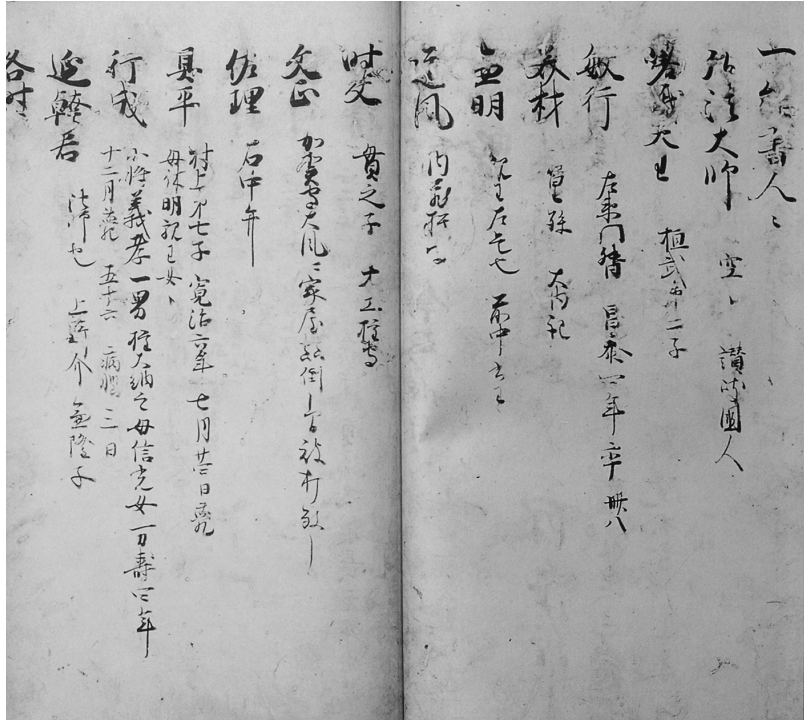 一能書人〻
弘法大師 空〻 讃岐國人
嵯峨天王 桓武第二子
敏行 左兵衛督 昌泰四年卒 卌八
美材 篁孫 大内記
兼明 親王左大臣也 前中書王
道風 内蔵権頭
時文 貫之子
文正 加賀守大風〻家屋顛倒
佐理
具平 村上第七子 寛治六年 七月廿日薨
母休明親王女〻
行成 少将義孝一男 権大納言 母信光女 万壽四年
十二月薨 五十六 病悩三日
延幹君 法師也 上野介兼隆子